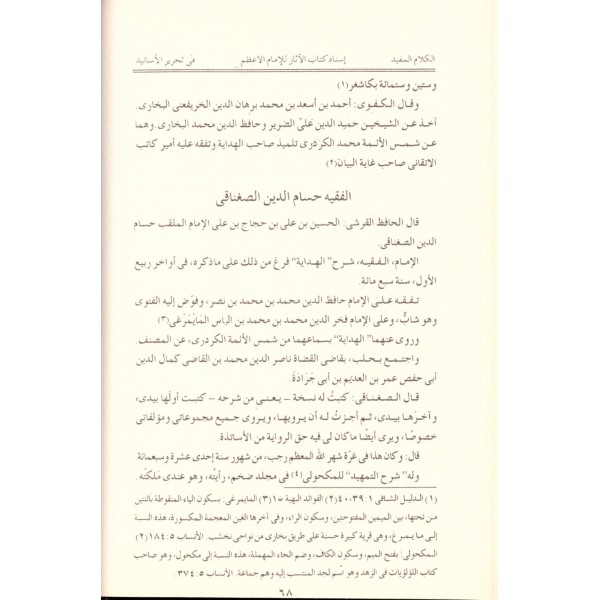 الكلام المفيد إسناد كتاب الآثار للإمام الاعظم فى تحرير الأسانيد
وستين وستمائة بكاشغر(١)
وقال الكفوى: أحمد بن أسعد بن محمد برهان الدين الخريفعنى البخارى.
أخذ عن الشيخين حميد الدين علىّ الضرير وحافظ الدين محمد البخارى. وهما
عن شمس الأئمة محمد الكردرى تلميذ صاحب الهداية وتفقه عليه أمير كاتب
الاتقانى صاحب غاية البيان(٢)
الفقيه حسام الدين الصغناقى
قال الحافظ القرشى: الحسين بن على بن حجاج بن على الإمام الملقب حسام
الدين الصغناقى.
الإمام، الفقيه، شرح "الهداية" فرغ من ذلك على ماذكره، فى أواخر ربيع
الأول، سنة سبع مائة.
تفقه على الإمام حافظ الدين محمد بن محمد بن نصر، وفوّض إليه الفتوى
وهو شابٌ، وعلى الإمام فخر الدين محمد بن محمد بن الياس المَايَمَرْغى(٣)
وروى عنهما "الهداية" بسماعهما من شمس الأئمة الكردرى، عن المصنف.
واجتمع بحلب، بقاضى القضاة ناصر الدين محمد بن القاضى كمال الدين
أبى حفص عمر بن العديم بن أبى جَرَادَةَ.
قال الصغناقى: كتبتُ له نسخة – يعنى من شرحه – كتبت أولَها بيدى،
وآخرَها بيدى، ثم أجزتُ له أن يرويها، ويروى جميع مجموعاتى ومؤلفاتى
خصوصًا، ويرى أيضًا ماكان لى فيه حق الرواية من الأساتذة.
قال: وكان هذا فى غرّة شهر الله المعظم رجب، من شهور سنة إحدى عشرة وسبعمائة.
وله "شرح التمهيد" للمكحولى(٤) فى مجلد ضخم، رأيتُه، وهو عندى مَلَكتُه.
(١) الدليل الشافى ١:٣٩،٤٠(٢) الفوائد البهية ١٥(٣) المايمرغى: بسكون الياء المنقوطة باثنتين
من تحتها، بين الميمين المفتوحتين، وسكون الراء، وفى آخرها الغين المعجمة المكسورة، هذه النسبة
إلى مايمرغ، وهى قرية كبيرة حسنة على طريق بخارى من نواحى نخشب. الأنساب ١٨٤:٥(٢)
المكحولى: بفتح الميم، وسكون الكاف، وضم الحاء المهملة، هذه النسبة إلى مكحول، وهو صاحب
كتاب اللؤلؤيات فى الزهد وهو اسم لجد المنتسب إليه وهم جماعة. الأنساب ٣٧٤:٥.
٦٨